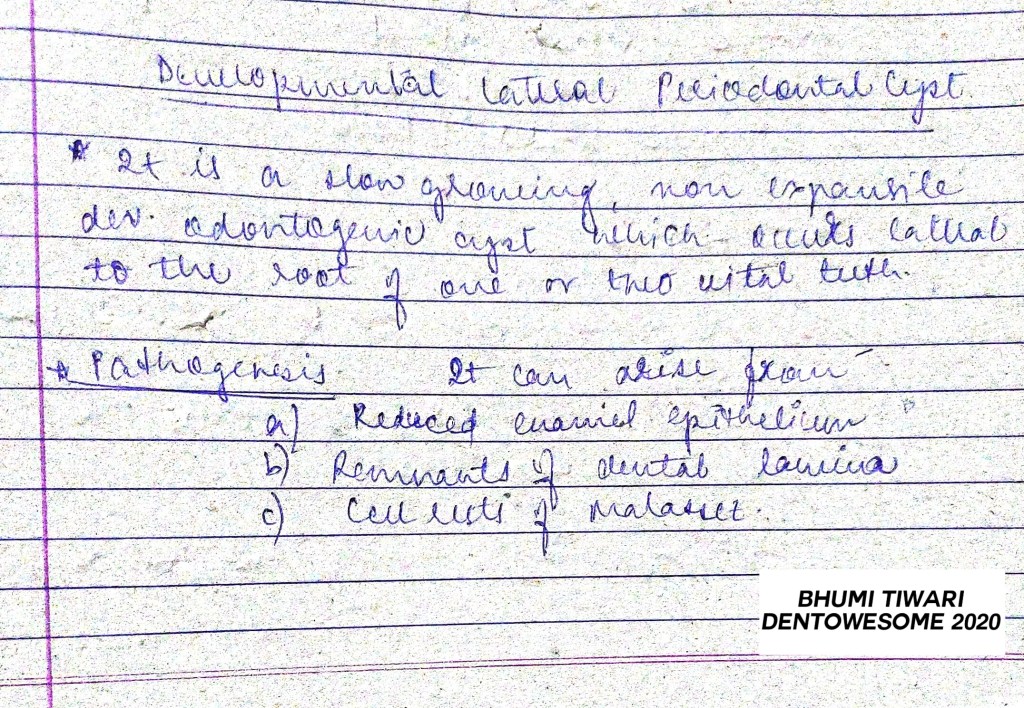 Developmental Lateral Periodontal Cyst.
* It is a slow growing, non expansile
dev. odontogenic cyst which occurs lateral
to the root of one or two vital teeth.
* Pathogenesis It can arise from
a) Reduced enamel epithelium
b) Remnants of dental lamina
c) Cell rests of malassez.
BHUMI TIWARI
DENTOWESOME 2020